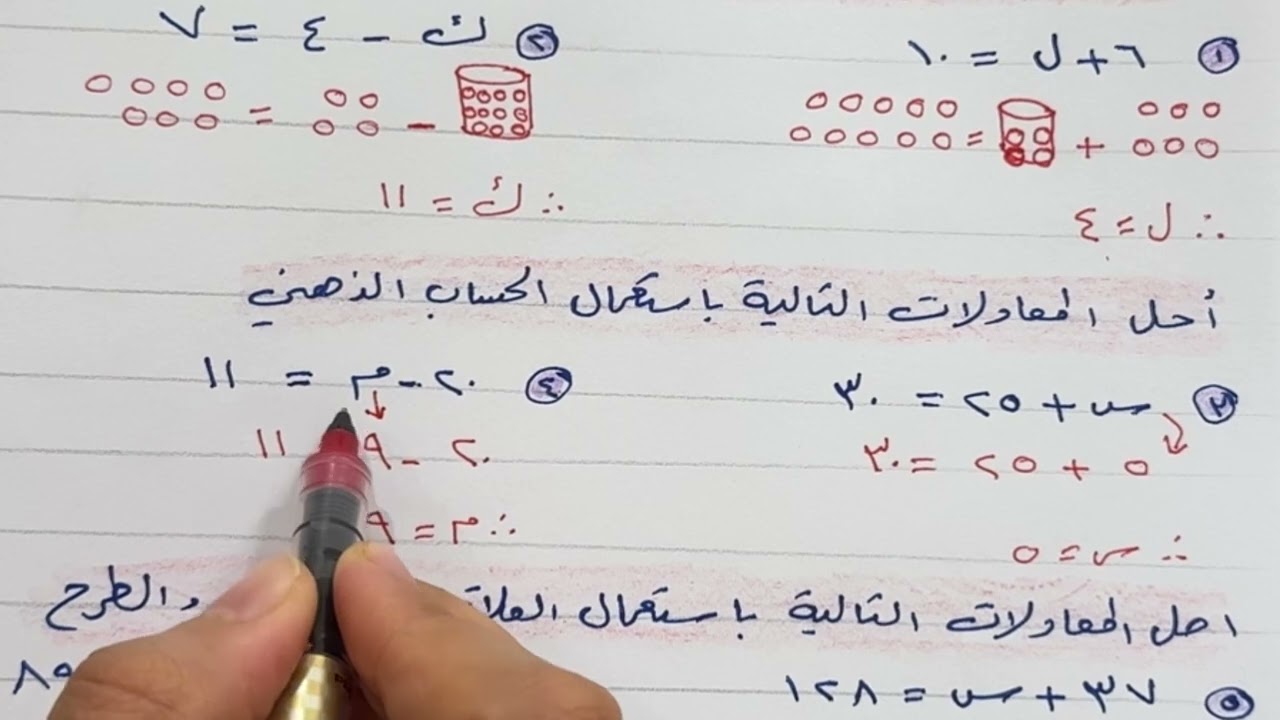 ١ ٦ + ل = ١٠
+ =
∴ ل = ٤
٢ ك - ٤ = ٧
- =
∴ ك = ١١
أحل المعادلات التالية باستعمال الحساب الذهني
٣ س + ٢٥ = ٣٠
٥ + ٢٥ = ٣٠
∴ س = ٥
٤ ٢٠ - م = ١١
٢٠ - ٩ ١١
∴ م = ٩
احل المعادلات التالية باستعمال والطرح
٥ ٣٧ + س = ١٢٨
٨٩